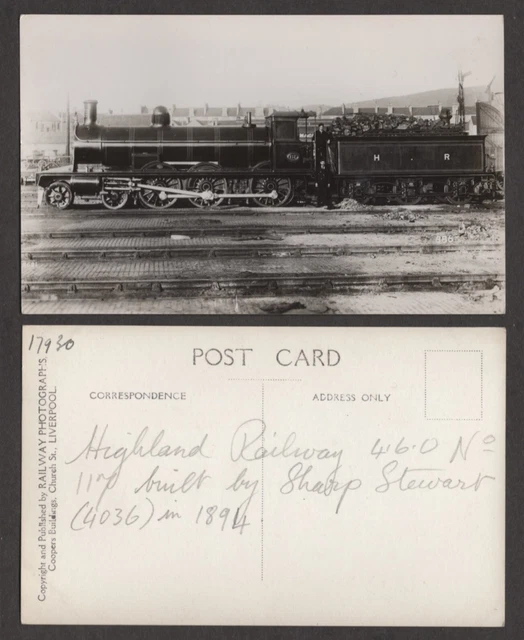 H R
17930
POST CARD
CORRESPONDENCE
ADDRESS ONLY
Copyright and Published by RAILWAY PHOTOGRAPHS.
Coopers Buildings, Church St., LIVERPOOL.
Highland Railway 4.6.0 No
117 built by Sharp Stewart
(4036) in 1894